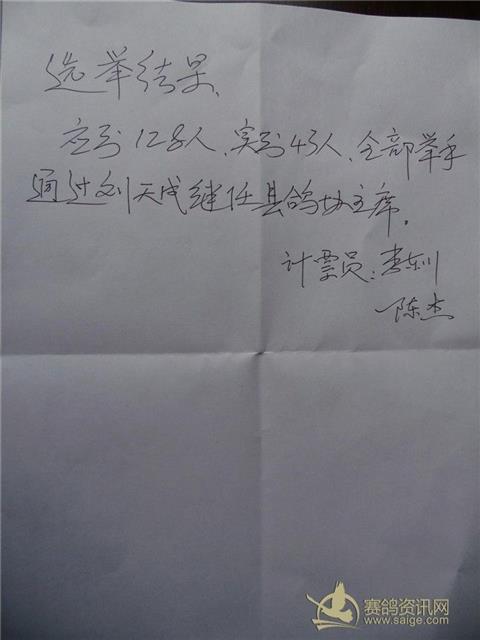 选举结果、
应到128人、实到43人、全部举手
通过刘天成继任县鸽协主席。
计票员:李东川
陈杰
赛鸽资讯网
www.saige.com